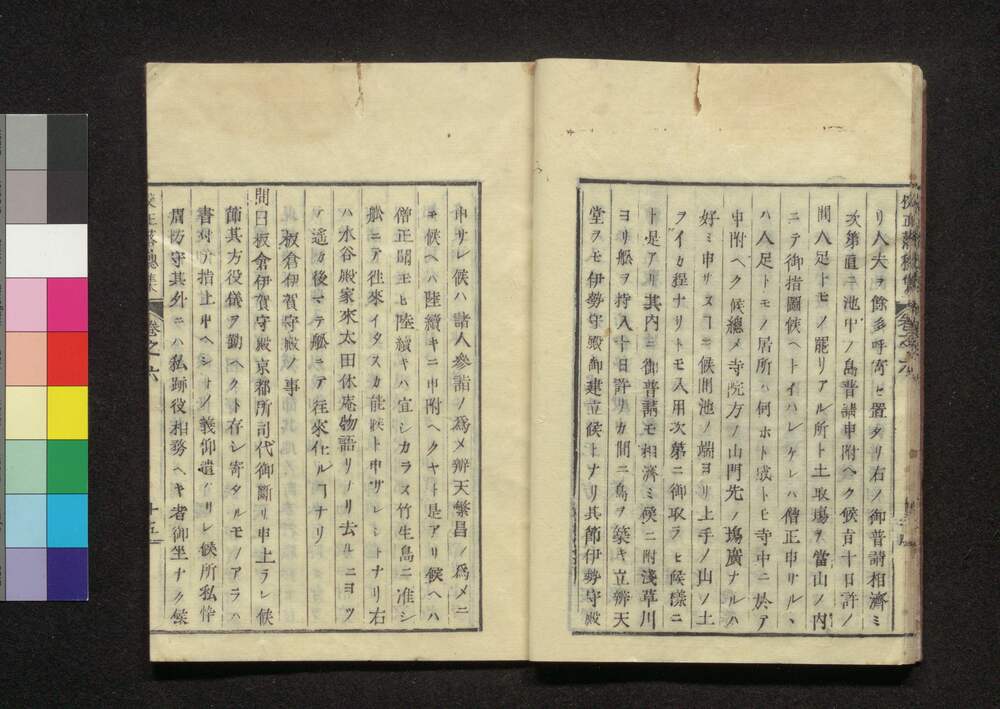 リ人夫ヲ餘多呼寄セ置タリ右ノ御普請相濟ミ
次第直ニ池中ノ島普請申附ヘク候百十日許ノ
間人足トモノ罷リアル所ト土取塲ヲ當山ノ内
ニテ御指圖候ヘトイハレケレハ僧正申サル丶
ハ人足トモノ居所ハ何ホト成トモ寺中ニ於テ
申附ヘク候總メ寺院方ノ山門先ノ塲廣ナルハ
好ミ申サスヿニ候間池ノ端ヨリ上手ノ山ノ土
ヲイカ程ナリトモ入用次第ニ御取ラセ候樣ニ
ト是アリ其内ニ御普請モ相濟ミ候ニ附淺草川
ヨリ船ヲ持入十日許リカ間ニ島ヲ築キ立辨天
堂ヲモ伊勢守殿御建立候トナリ其節伊勢守殿
申サレ候ハ諸人參詣ノ爲メ辨天繁昌ノ爲メニ
モ候ヘハ陸續キニ申附ヘクヤト是アリ候ヘハ
僧正聞モヒ陸續キハ宜シカラス竹生島ニ准シ
舩ニテ往來イタスカ能候ト申サレシトナリ右
ハ水谷殿家來太田休庵物語リナリ去ルニヨツ
テ遙カ後マテ舩ニテ往來仕ルヿナリ
板倉伊賀守殿ノ事
問曰板倉伊賀守殿京都所司代御斷リ申上ラレ候
節其方役儀ヲ勤ヘクト存シ寄タルモノアラハ
書付 指上申ヘシトノ義仰遣 リレ候所私悴
周防守其外ニハ私跡役相務ヘキ者御坐ナク候
卷之六
十五